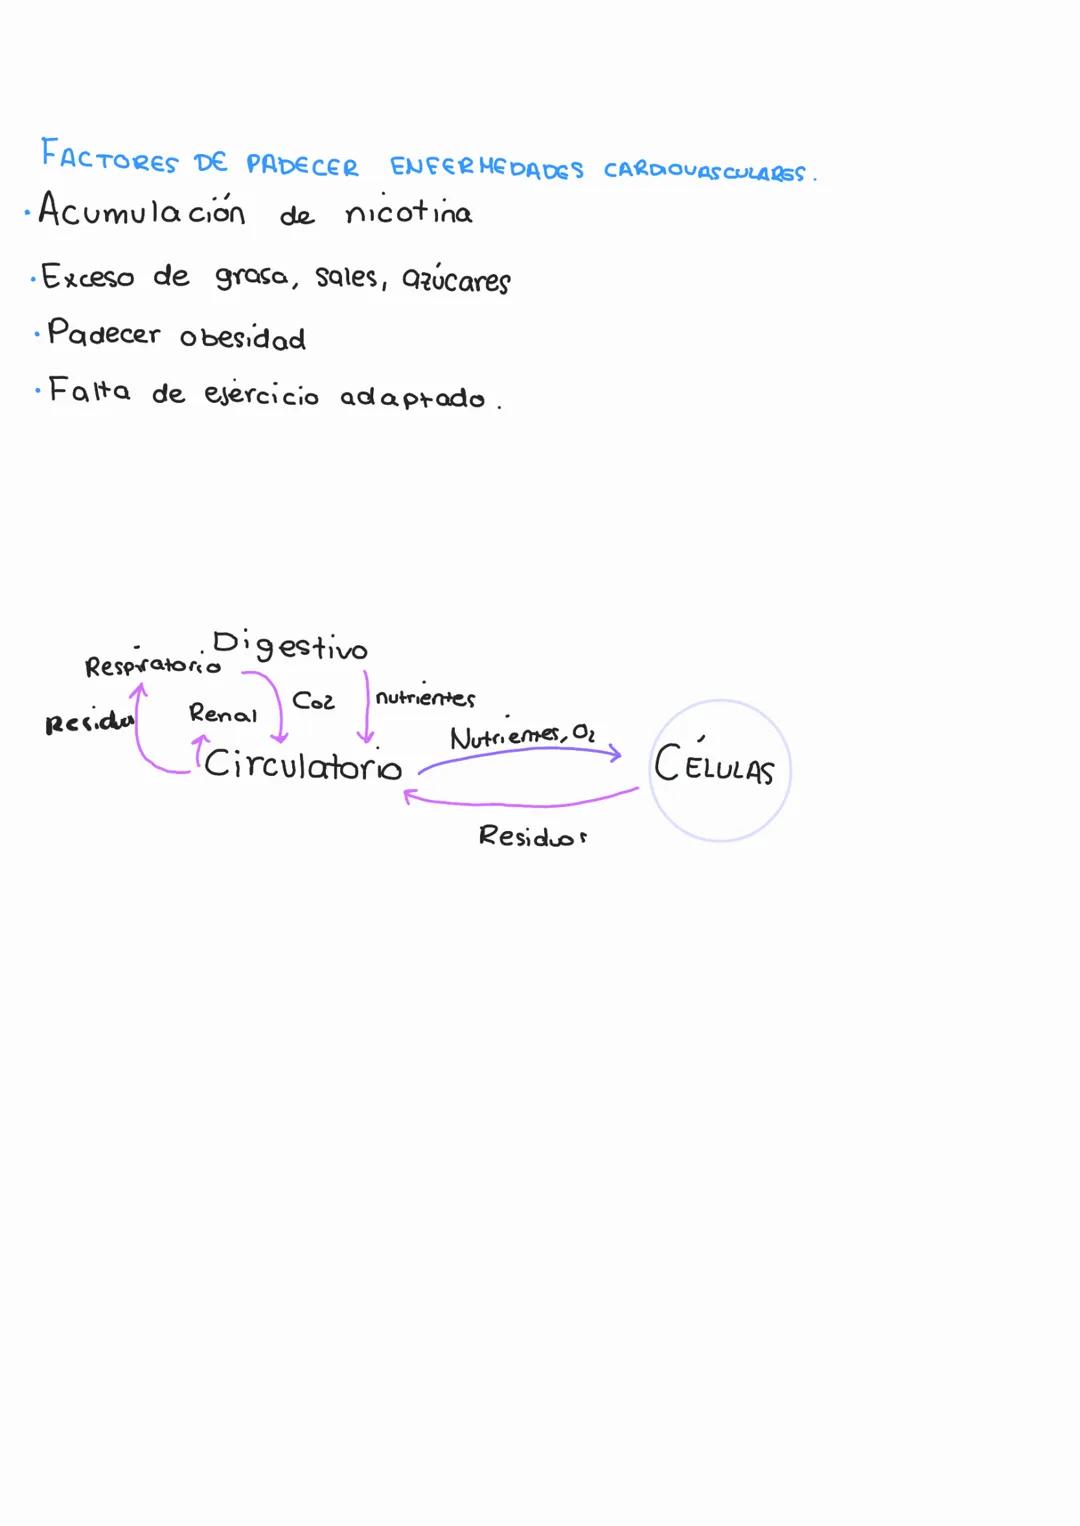 FACTORES DE PADECER ENFERMEDADES CARDIOVASCULARES.
· Acumulación de nicotina
· Exceso de grasa, sales, azúcares
· Padecer obesidad
· Falta de ejercicio adaptado.
Digestivo
Respiratorio
Co2
nutrientes
Residu
Renal
Nutrientes, O2
Circulatorio
CÉLULAS
Residuos